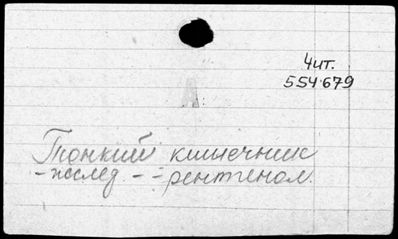 Чит.
554679
А
Тонкий кишечник
- исслед. - - рентгенол.